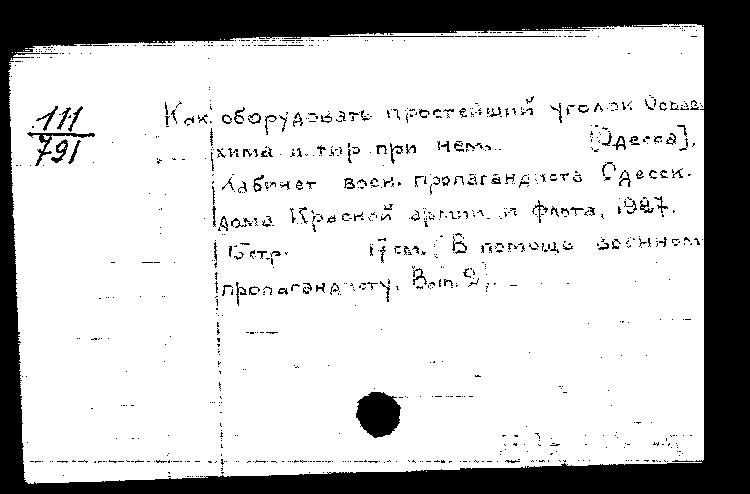 111
791
Как оборудовать простейший уголок Осоавиа
хима и тир при нем. [Одесса],
Кабинет воен. пропагандиста Одесск.
дома Красной армии и флота, 1927.
15 стр. 17 см. (В помощь военном
пропагандисту. Вып. 2).